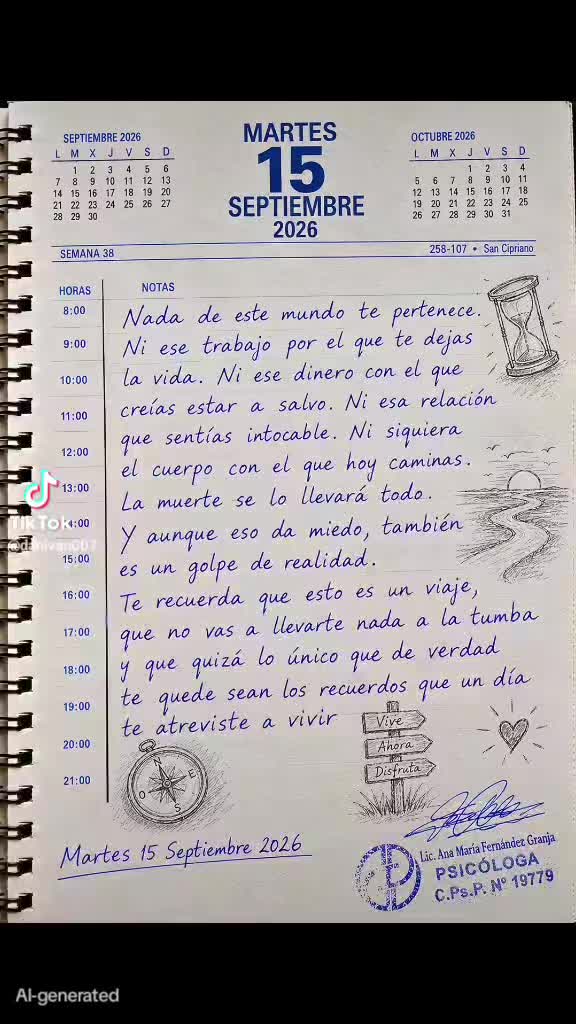 MARTES
15
SEPTIEMBRE
2026
SEPTIEMBRE 2026
L M X J V S D
1 2 3 4 5 6
7 8 9 10 11 12 13
14 15 16 17 18 19 20
21 22 23 24 25 26 27
28 29 30
OCTUBRE 2026
L M X J V S D
1 2 3 4
5 6 7 8 9 10 11
12 13 14 15 16 17 18
19 20 21 22 23 24 25
26 27 28 29 30 31
SEMANA 38
258-107 • San Cipriano
HORAS
NOTAS
8:00
9:00
10:00
11:00
12:00
13:00
15:00
16:00
17:00
18:00
19:00
20:00
21:00
Nada de este mundo te pertenece.
Ni ese trabajo por el que te dejas
la vida. Ni ese dinero con el que
creías estar a salvo. Ni esa relación
que sentías intocable. Ni siquiera
el cuerpo con el que hoy caminas.
La muerte se lo llevará todo.
Y aunque eso da miedo, también
es un golpe de realidad.
Te recuerda que esto es un viaje,
que no vas a llevarte nada a la tumba
y que quizá lo único que de verdad
te quede sean los recuerdos que un día
te atreviste a vivir
Vive
Ahora
Disfruta
N
E
S
O
Martes 15 Septiembre 2026
Lic. Ana María Fernández Granja
PSICÓLOGA
C.Ps.P. Nº 19779
TikTok
AI-generated